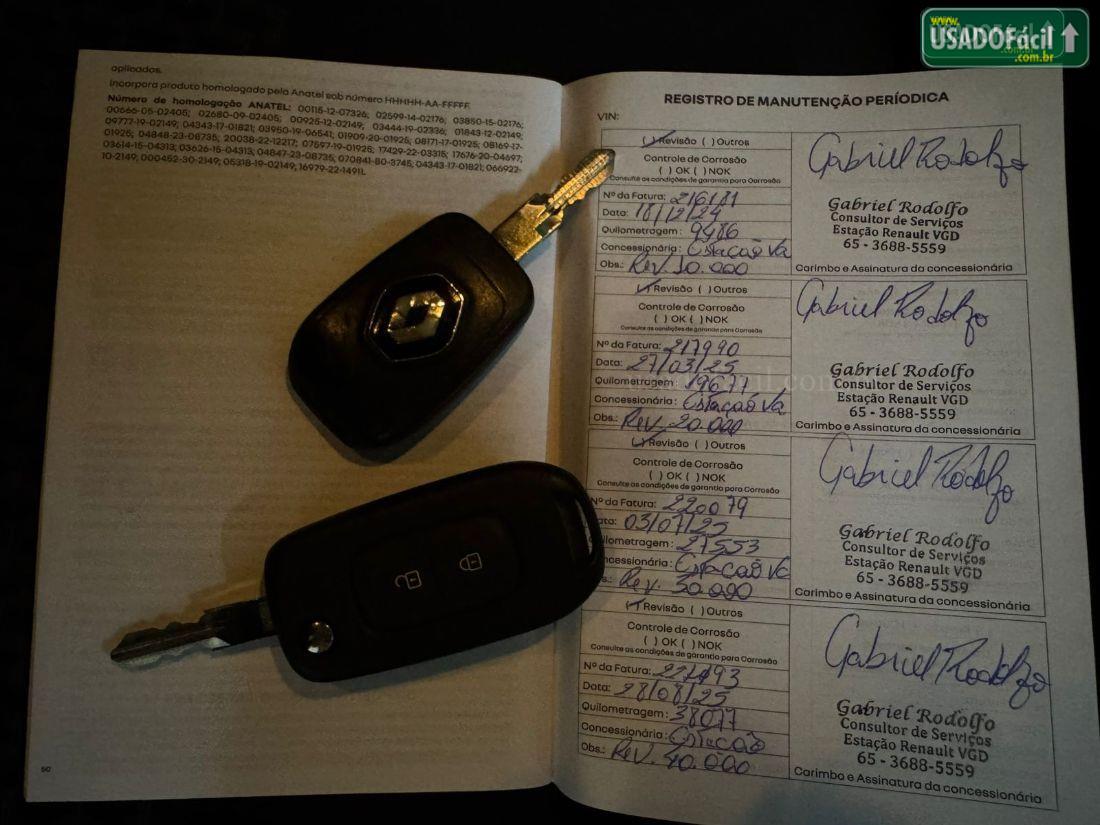 www.
USADOFácil
.com.br
aplicados.
Incorpora produto homologado pela Anatel sob número HHHHH-AA-FFFFF.
Número de homologação ANATEL: 00115-12-07326; 02599-14-02176; 03850-15-02176;
00666-05-02405; 02680-09-02405; 00925-12-02149; 03444-19-02336; 01843-12-02149;
09777-19-02149; 04343-17-01821; 03950-19-06541; 01909-20-01925; 08171-17-01925; 08169-17-
01925; 04848-23-08735; 20038-22-12217; 07597-19-01925; 17429-22-03315; 17676-20-04697;
03614-15-04313; 03626-15-04313; 04847-23-08735; 070841-80-3745; 04343-17-01821; 066922-
10-2149; 000452-30-2149; 05318-19-02149, 16979-22-14911.
60
REGISTRO DE MANUTENÇÃO PERÍODICA
VIN:
Revisão ( ) Outros
Controle de Corrosão
( ) OK ( ) NOK
Consulte as condições de garantia para Corrosão
Nº da Fatura: 216181
Data: 18/12/24
Quilometragem: 9486
Concessionária: Estacaõ Va
Obs.: Rev. 10.000
Gabriel Rodolfo
Gabriel Rodolfo
Consultor de Serviços
Estação Renault VGD
65 - 3688-5559
Carimbo e Assinatura da concessionária
Revisão ( ) Outros
Controle de Corrosão
( ) OK ( ) NOK
Consulte as condições de garantia para Corrosão
Nº da Fatura: 217990
Data: 27/03/25
Quilometragem: 19677
Concessionária: Estacaõ Va
Obs.: Rev. 20.000
Gabriel Rodolfo
Gabriel Rodolfo
Consultor de Serviços
Estação Renault VGD
65 - 3688-5559
Carimbo e Assinatura da concessionária
Revisão ( ) Outros
Controle de Corrosão
( ) OK ( ) NOK
Consulte as condições de garantia para Corrosão
Nº da Fatura: 220079
Data: 03/07/25
Quilometragem: 27553
Concessionária: Estacaõ Va
Obs.: Rev. 30.000
Gabriel Rodolfo
Gabriel Rodolfo
Consultor de Serviços
Estação Renault VGD
65 - 3688-5559
Carimbo e Assinatura da concessionária
Revisão ( ) Outros
Controle de Corrosão
( ) OK ( ) NOK
Consulte as condições de garantia para Corrosão
Nº da Fatura:
Data: 28/08/25
Quilometragem: 38077
Concessionária: Estacaõ
Obs.: Rev. 40.000
Gabriel Rodolfo
Gabriel Rodolfo
Consultor de Serviços
Estação Renault VGD
65 - 3688-5559
Carimbo e Assinatura da concessionária